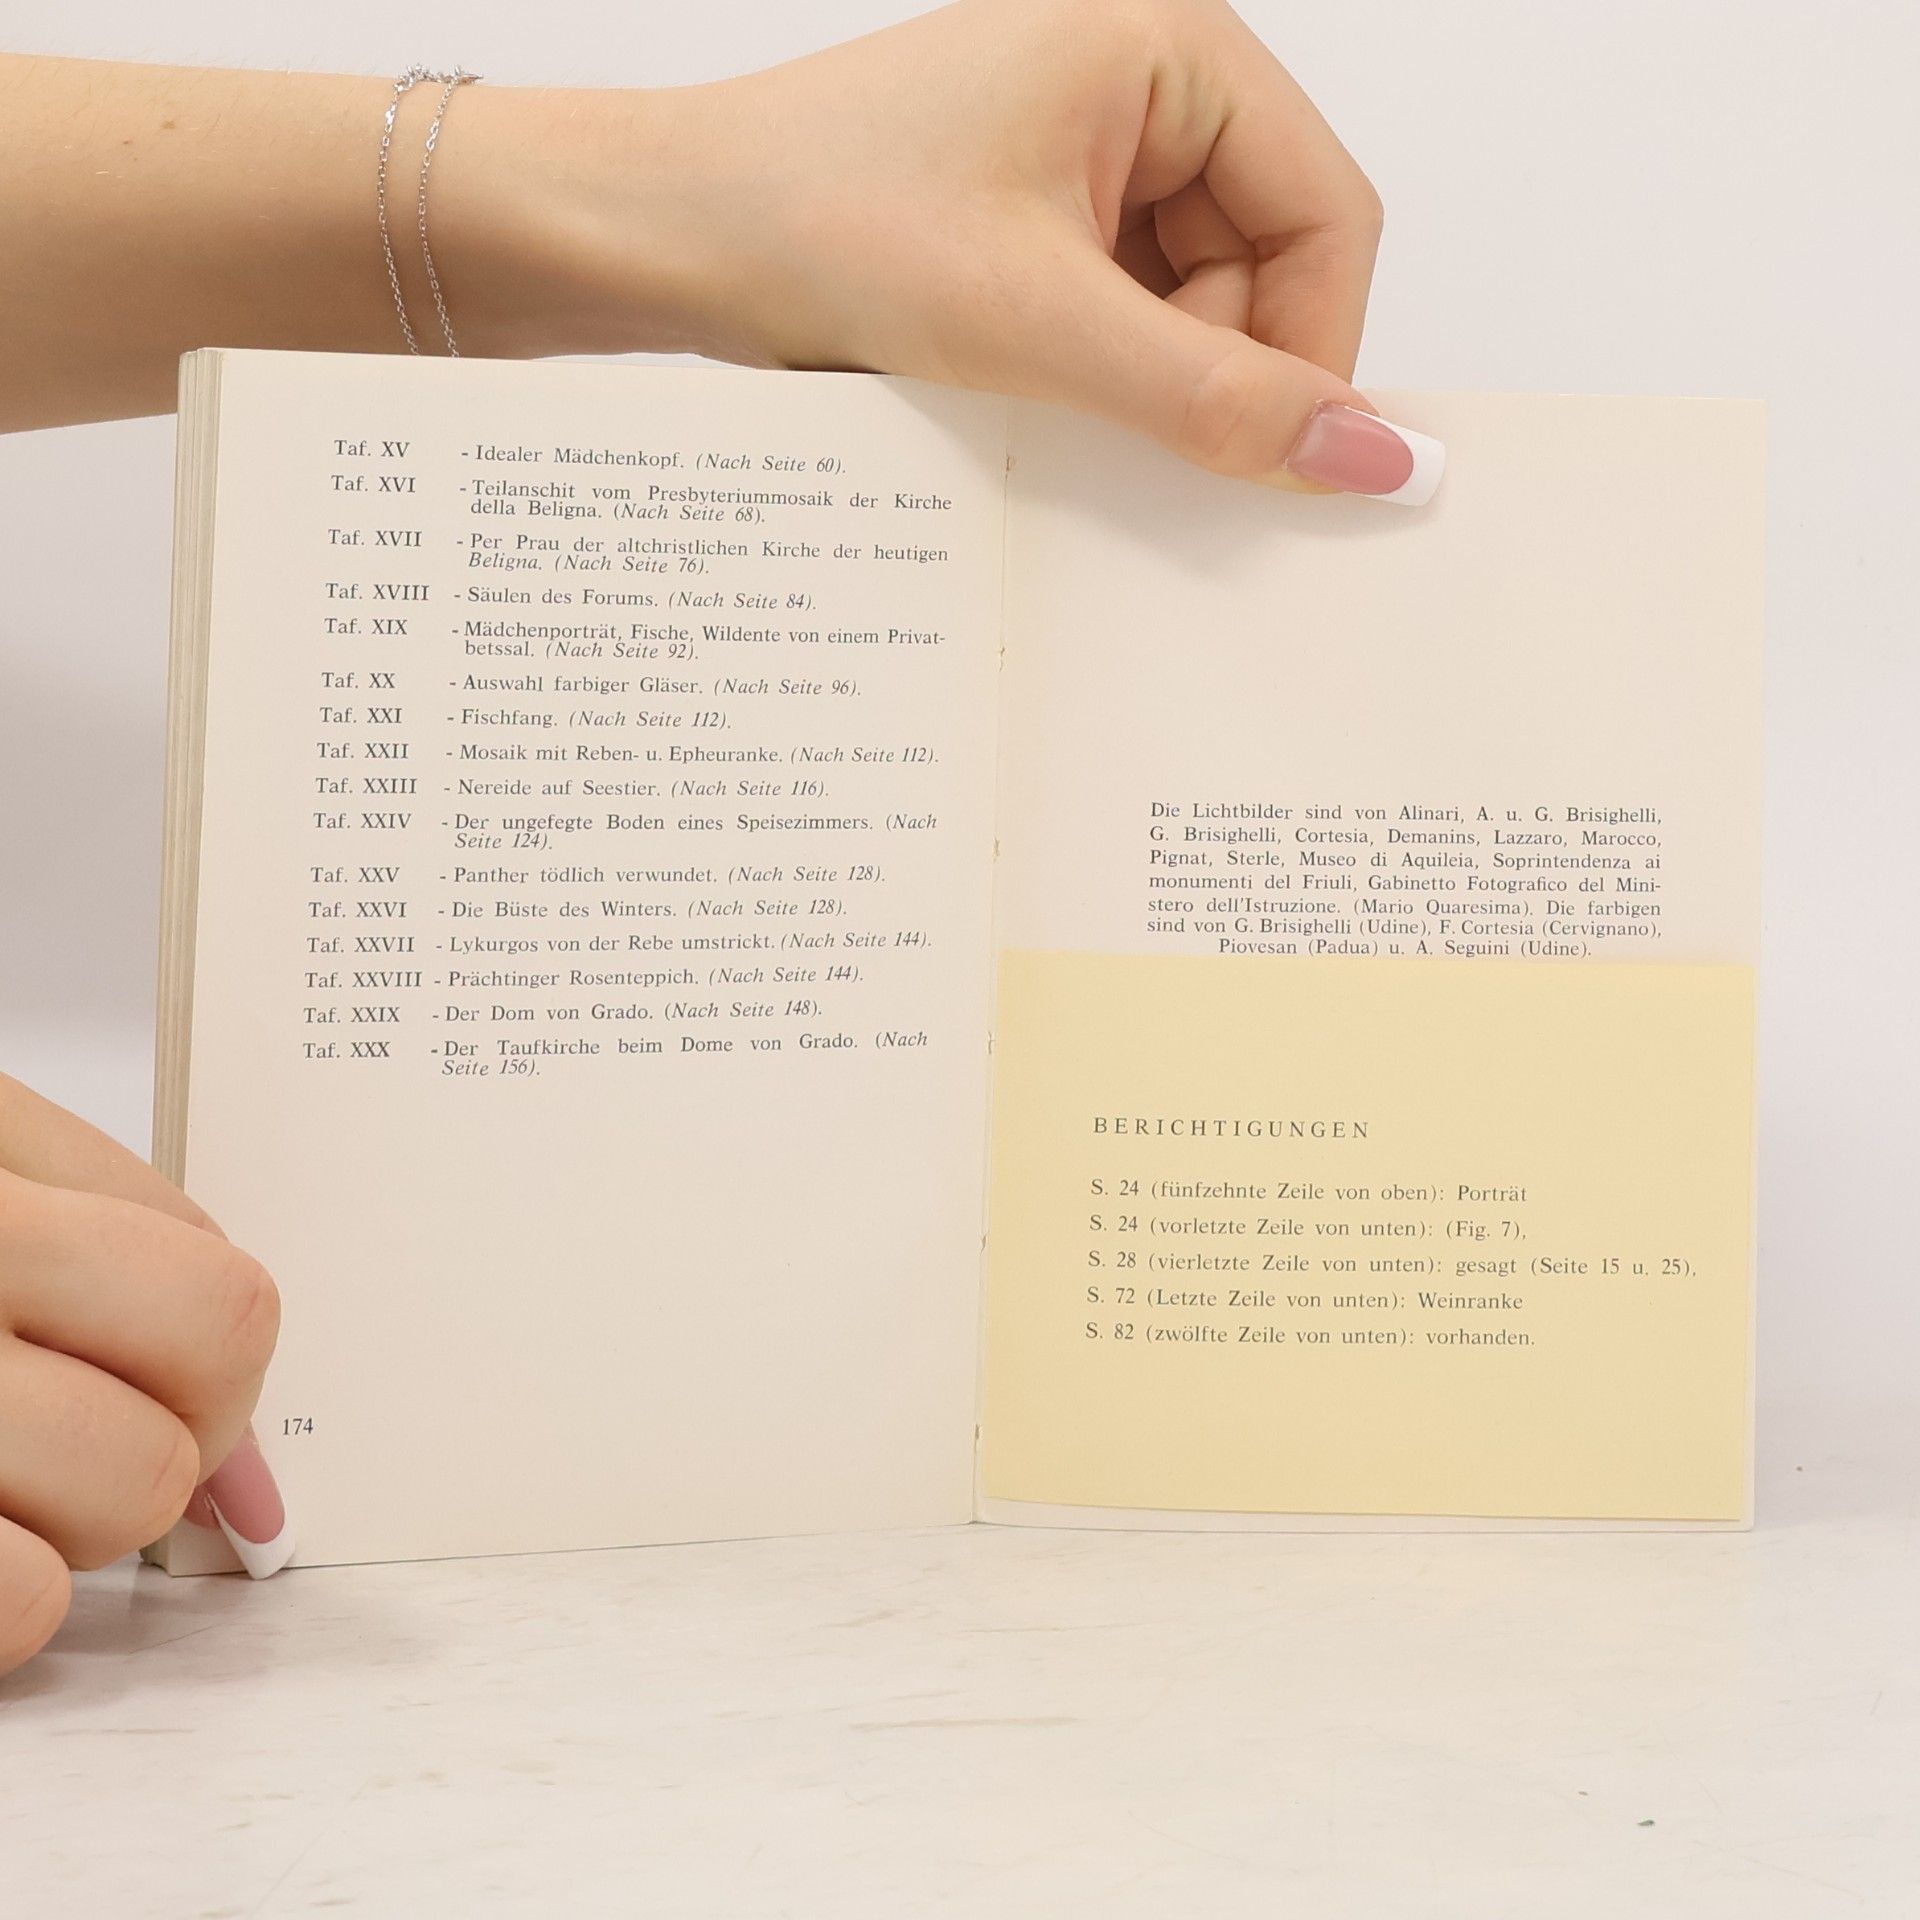 Taf. XV - Idealer Mädchenkopf. (Nach Seite 60).
Taf. XVI - Teilanschit vom Presbyteriummosaik der Kirche
della Beligna. (Nach Seite 68).
Taf. XVII - Per Prau der altchristlichen Kirche der heutigen
Beligna. (Nach Seite 76).
Taf. XVIII - Säulen des Forums. (Nach Seite 84).
Taf. XIX - Mädchenporträt, Fische, Wildente von einem Privat-
betssal. (Nach Seite 92).
Taf. XX - Auswahl farbiger Gläser. (Nach Seite 96).
Taf. XXI - Fischfang. (Nach Seite 112).
Taf. XXII - Mosaik mit Reben- u. Epheuranke. (Nach Seite 112).
Taf. XXIII - Nereide auf Seestier. (Nach Seite 116).
Taf. XXIV - Der ungefegte Boden eines Speisezimmers. (Nach
Seite 124).
Taf. XXV - Panther tödlich verwundet. (Nach Seite 128).
Taf. XXVI - Die Büste des Winters. (Nach Seite 128).
Taf. XXVII - Lykurgos von der Rebe umstrickt. (Nach Seite 144).
Taf. XXVIII - Prächtinger Rosenteppich. (Nach Seite 144).
Taf. XXIX - Der Dom von Grado. (Nach Seite 148).
Taf. XXX - Der Taufkirche beim Dome von Grado. (Nach
Seite 156).
174
Die Lichtbilder sind von Alinari, A. u. G. Brisighelli,
G. Brisighelli, Cortesia, Demanins, Lazzaro, Marocco,
Pignat, Sterle, Museo di Aquileia, Soprintendenza ai
monumenti del Friuli, Gabinetto Fotografico del Mini-
stero dell'Istruzione. (Mario Quaresima). Die farbigen
sind von G. Brisighelli (Udine), F. Cortesia (Cervignano),
Piovesan (Padua) u. A. Seguini (Udine).
BERICHTIGUNGEN
S. 24 (fünfzehnte Zeile von oben): Porträt
S. 24 (vorletzte Zeile von unten): (Fig. 7),
S. 28 (vierletzte Zeile von unten): gesagt (Seite 15 u. 25),
S. 72 (Letzte Zeile von unten): Weinranke
S. 82 (zwölfte Zeile von unten): vorhanden.